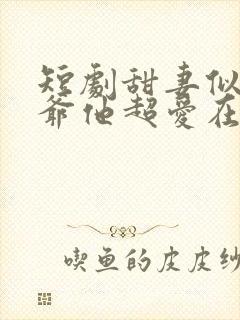 短劇甜妻似
爺他超愛在
喫鱼的皮皮纱